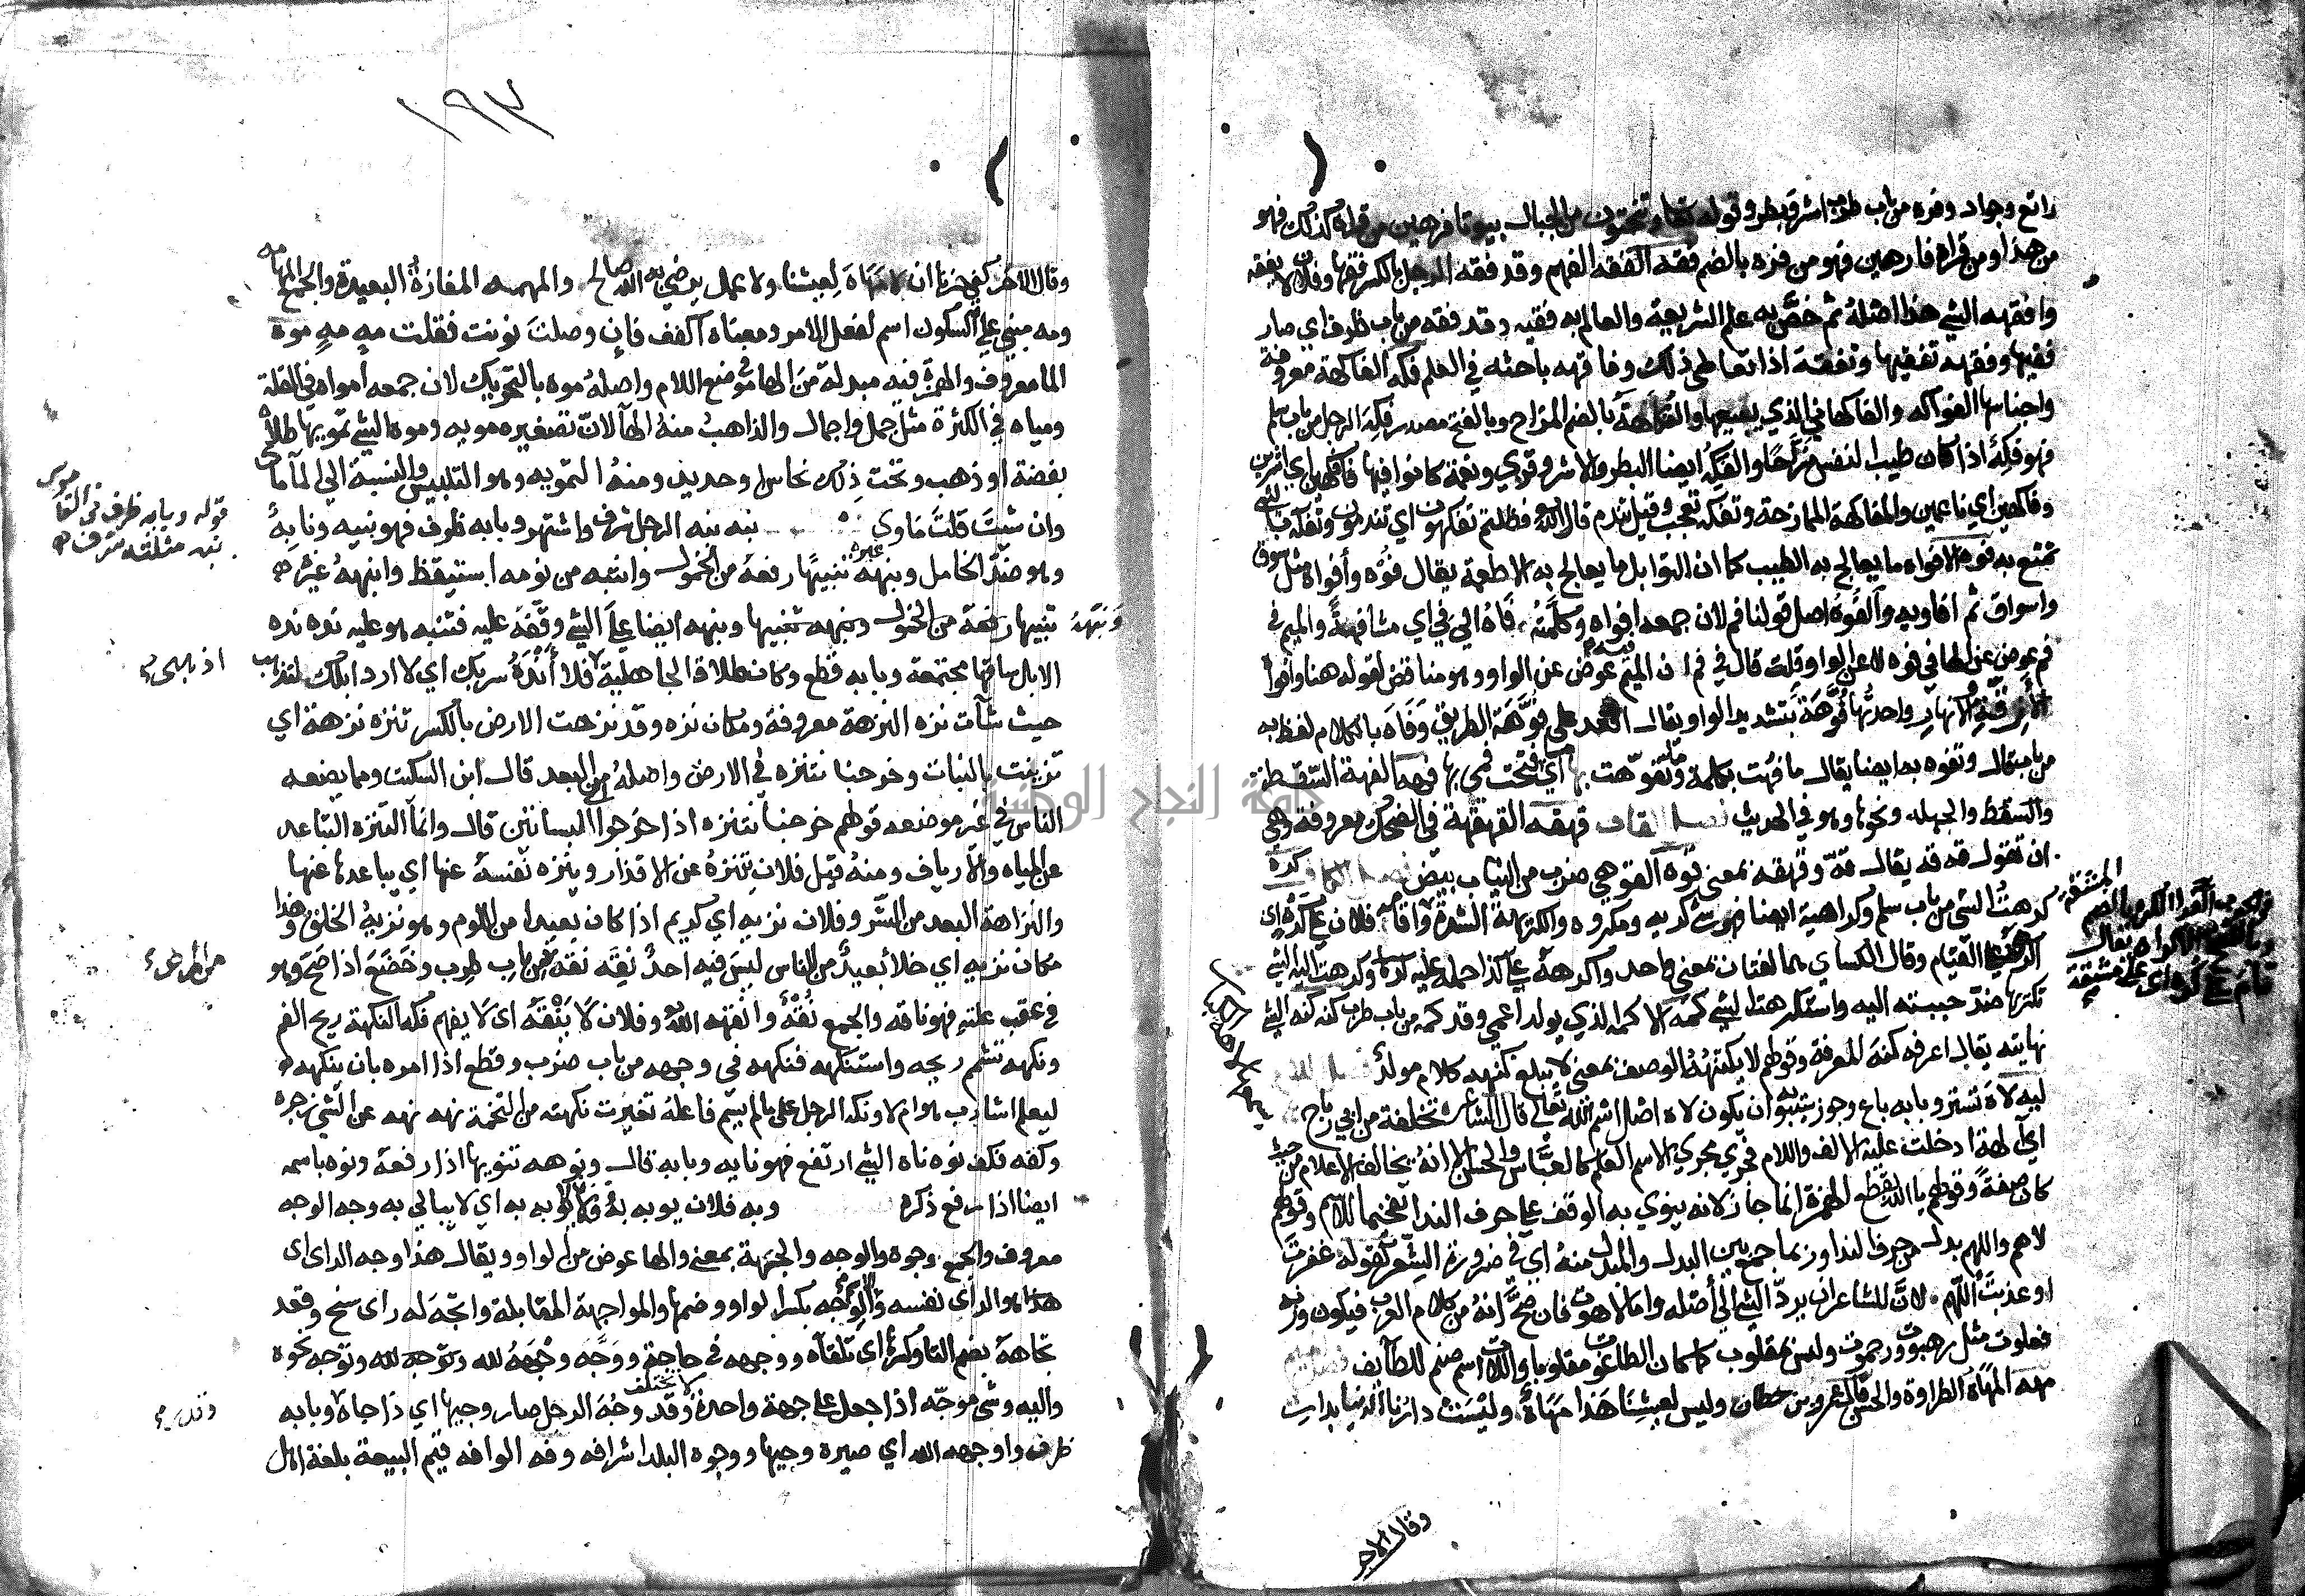 رائع وجواد وفره من باب طرب اشر وبطر وقوله تعالى وتنحتون من الجبال بيوتا فرهين من قراه كذلك فهو
من هذا ومن قراه فارهين فهو من فره بالضم فقه الفقه الفهم وقد فقه الرجل بالكسر فقها وفلان لا يفقه
وافقهه الشي هذا اصله ثم خص به علم الشريعة والعالم به فقيه وقد فقه من باب ظرف اي صار
فقيها وفقهه تفقيها وتفقه اذا تعاطى ذلك وفاقهه باحثه في العلم فكه الفاكهة معروفة
واجناسها الفواكه والفاكهاني الذي يبيعها والفكاهة بالضم المزاح وبالفتح مصدر فكه الرجل من باب سلم
فهو فكه اذا كان طيب النفس مزاحا والفكه ايضا البطر والاشر وقري ونعمة كانوا فيها فاكهين اي اشرين
وفاكهين اي ناعمين والمفاكهة الممازحة وتفكه تعجب وقيل تندم قال الله فظلتم تفكهون اي تندمون وتفكه بالشي
تمتع به فوه الافواه ما يعالج به الطيب كما ان التوابل ما يعالج به الاطعمة يقال فوه وأفواه مثل سوق
واسواق ثم افاويه والفوه اصل قولنا فم لان جمعه افواه وكلمته فاه الى في اي مشافهة والميم في
فم عوض عن الها في فوه لا عن الواو قلت قال في فم ان الميم فيه عوض عن الواو وهو مناقض لقوله هنا وافواه
الأزقة والانهار واحدتها فوهة بتشديد الواو يقال اقعد على فوهة الطريق وفاه بالكلام لفظ به
من باب قال وتفوه به ايضا يقال ما فهت بكلمة وما تفوهت بها اي ما فتحت فمي بها فهه الفهة السقطة
والسقط والجهله ونحوها وهو في الحديث فصل القاف قهقه القهقهة في الضحك معروفة وهي
ان تقول قه قه يقال قه وقهقه بمعنى قوه القوهي ضرب من الثياب بيض فصل الكاف كره
كرهت الشي من باب سلم وكراهية ايضا فهو شي كريه ومكروه والكريهة الشدة واقامه فلان على كره اي
اكرهه على القيام وقال الكساي هما لغتان بمعنى واحد واكرهه على كذا حمله عليه كرها وكرهت اليه الشي
تكريها ضد حببته اليه واستكرهت الشي كمه الاكمه الذي يولد اعمى وقد كمه من باب طرب كنه كنه الشي
نهايته يقال اعرفه كنه المعرفة وقولهم لا يكتنهه الوصف بمعنى لا يبلغ كنهه كلام مولد فصل اللام
ليه لاه تستر وبابه باع وجوز سيبويه ان يكون لاه اصل اسم الله تعالى قال الشاعر كحلفة من ابي رباح
اي الهه ادخلت عليه الالف واللام فجرى مجرى الاسم العلم كالعباس والحسن الا انه يخالف الاعلام من حيث
كان صفة وقولهم يا الله بقطع الهمزة انما جاز لانه ينوي به الوقف على حرف الندا تفخيما للاسم وقولهم
لاهم واللهم بدل من حرف الندا وربما جمع بين البدل والمبدل منه اي في ضرورة الشعر كقوله غفرت
او عذبت يا اللهم لان للشاعر ان يرد الشي الى أصله واما لاهوت فان صح انه من كلام العرب فيكون وزنه
فعلوت مثل رهبوت ورحموت وليس بمقلوب كما كان الطاغوت مقلوبا واللات اسم صنم للطايف فصل الميم
مهه المهاه الطراوة والحسن قال عمرو بن حطان وليس لعيشنا هذا مهاه وليست دارنا الدنيا بدار
وقال الاخر
١٩٣
وقال الاخر كفى حزنا ان لا مهاه لعيشنا ولا عمل يرضى به الله صالح والمهمه المفازة البعيدة والجمع المهامه
ومه مبني على السكون اسم لفعل الامر ومعناه اكفف فان وصلت نونت فقلت مه مه موه
الما معروف والهمزة فيه مبدلة من الها في موضع اللام واصله موه بالتحريك لان جمعه أمواه في القلة
ومياه في الكثرة مثل جمل واجمال والذاهب منه الها لان تصغيره مويه وموه الشي تمويها طلاه
بفضة او ذهب وتحت ذلك نحاس او حديد ومنه التمويه وهو التلبيس والنسبة الى الما مائي
وان شئت قلت ماوي نبه نبه الرجل شرف واشتهر وبابه ظرف فهو نبيه ونابه
وهو ضد الخامل ونبهه غيره تنبيها رفعه من الخمول وانتبه من نومه استيقظ وانبهه غيره
ونبهه تنبيها رفعة من الخمول ونبهه تنبيها ونبهه ايضا على الشي وقفه عليه فتنبه هو عليه نده نده
الابل ساقها مجتمعة وبابه قطع وكان طلاق الجاهلية فلا أنده سربك اي لا ارد ابلك لتذهب
حيث شآت نزه النزهة معروفة ومكان نزه وقد نزهت الارض بالكسر تنزه نزهة اي
تزينت بالنبات وخرجنا نتنزه في الارض واصله من البعد قال ابن السكيت ومما يضعه
الناس في غير موضعه قولهم خرجنا نتنزه اذا خرجوا الى البساتين قال وانما التنزه التباعد
عن المياه والأرياف ومنه قيل فلان يتنزه عن الاقذار وينزه نفسه عنها اي يباعدها عنها
والنزاهة البعد من الشر وفلان نزيه اي كريم اذا كان بعيدا من اللوم وهو نزيه الخلق وهذا
مكان نزيه اي خلا بعيد من الناس ليس فيه احد نقه نقه من باب طرب وخضع اذا صح وهو
في عقب علته فهو ناقه والجمع نقه وانقهه الله وفلان لا ينقه اي لا يفهم نكه النكهة ريح الفم
ونكهه تشمم ريحه واستنكهه فنكهه في وجهه من باب ضرب وقطع اذا امره بان ينكهه
ليعلم اشارب هو ام لا ونكه الرجل على ما لم يسم فاعله تغيرت نكهته من التخمة نهنه نهنه عن الشي زجره
وكفه فكف نوه ناه الشي ارتفع فهو نايه وبابه قال ونوهه تنويها اذا رفعه ونوه باسمه
ايضا اذا رفع ذكره وبه فلان يوبه به ولا يوبه به اي لا يبالي به وجه الوجه
معروف والجمع وجوه والوجه والجهة بمعنى والها عوض من الواو ويقال هذا وجه الراي اي
هذا هو الراي نفسه والوجه بكسر الواو وضمها والمواجهة المقابلة واتجه له راى سنح وقعد
تجاهه بضم التا وكسرها اي تلقآه ووجهه في حاجة ووجه وجهه لله وتوجه لله وتوجه نحوه
واليه وشي موجه اذا جعل على جهة واحدة لا يختلف وقد وجه الرجل صار وجيها اي ذا جاه وبابه
ظرف واوجهه الله اي صيره وجيها ووجوه البلد اشرافه وفه الوافه قيم البيعة بلغة اهل
قوله وبابه ظرف في القاموس
نبه مثلثه شرف
جامعة النجاح الوطنية